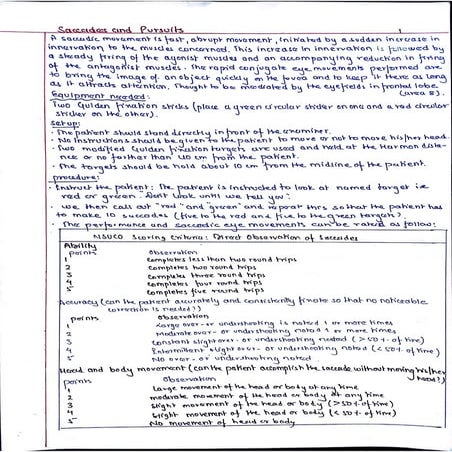 Saccades and Pursuits
A saccadic movement is fast, abrupt movement, initiated by a sudden increase in
innervation to the muscles concerned. This increase in innervation is followed by
a steady firing of the agonist muscles and an accompanying reduction in firing
of the antagonist muscles. The rapid conjugate eye movements performed are
to bring the image of an object quickly on the fovea and to keep it there as long
as it attracts attention. Thought to be mediated by the eyefields in frontal lobe
(area 8).
Equipment needed:
Two Gulden fixation sticks (place a green circular sticker on one and a red circular
sticker on the other).
setup:
· The patient should stand directly in front of the examiner.
· No instructions should be given to the patient to move or not to move his/her head.
· Two modified Gulden fixation targets are used and held at the Harmon dista-
nce or no farther than 40 cm from the patient.
· The targets should be hold about 10 cm from the midline of the patient.
procedure:
· Instruct the patient: The patient is instructed to look at named target i.e
red or green. "Dont look until we tell you".
· we then call out "red" and "green" and repeat this so that the patient has
to make 10 saccades (five to the red and five to the green target).
· The performance and saccadic eye movements can be rated as follow:
NSUCO Scoring Criteria: Direct Observation of Saccades
Ability
points Observation
1 completes less than two round trips
2 completes two round trips
3 completes three round trips
4 completes four round trips
5 completes five round trips
Accuracy (can the patient accurately and consistently fixate so that no noticeable
correction is needed?)
points Observation
1 Large over- or undershooting is noted 1 or more times
2 Moderate over- or undershooting noted 1 or more times
3 Constant slight over- or undershooting noted (>50% of time)
4 Intermittent slight over- or undershooting noted (<50% of time)
5 No over- or undershooting noted
Head and body movement (can the patient accomplish the saccade without moving his/her
head?)
points Observation
1 Large movement of the head or body at any time
2 moderate movement of the head or body at any time
3 slight movement of the head or body (>50% of time)
4 slight movement of the head or body (<50% of time)
5 No movement of head or body